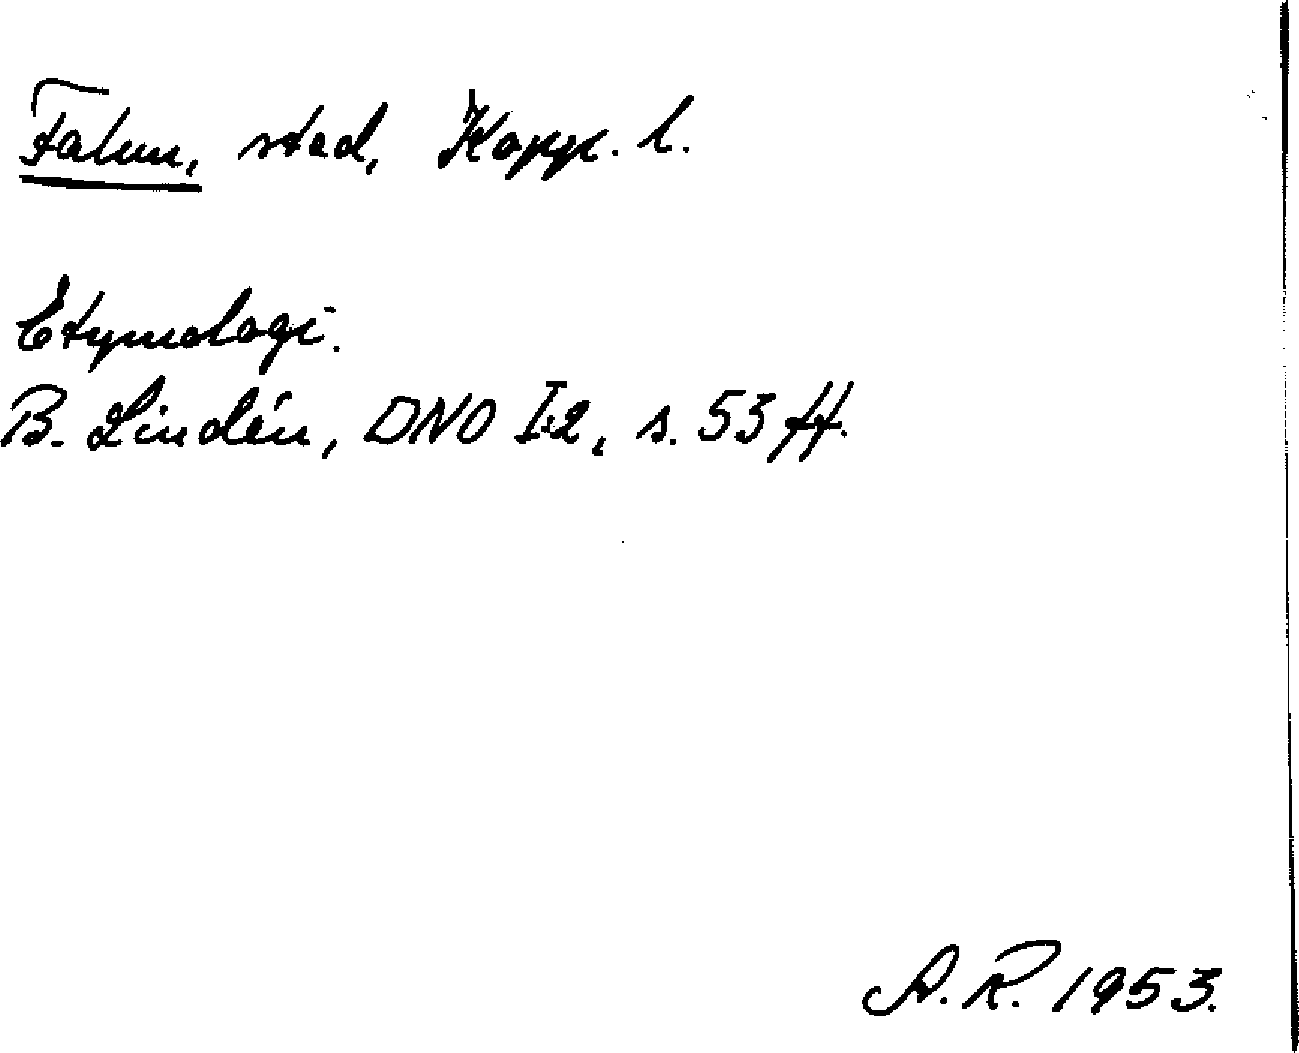 Falun, stad, Kopp. l.
Etymologi.
B. Lindén, DNO I:2, s. 53 ff.
A. R. 1953.